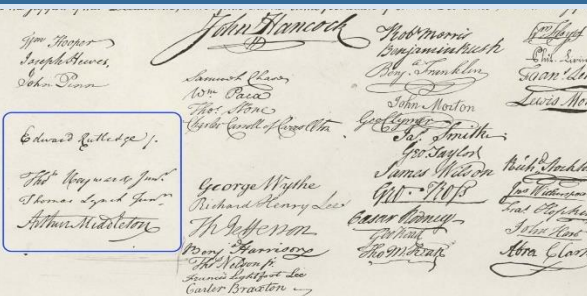 John Hancock
Wm Hooper
Joseph Hewes,
John Penn
Edward Rutledge /.
Thos Heyward Junr.
Thomas Lynch Junr.
Arthur Middleton
Samuel Chase
Wm. Paca
Thos. Stone
Charles Carroll of Carrollton
George Wythe
Richard Henry Lee
Th Jefferson
Benj. Harrison
Thos Nelson jr.
Francis Lightfoot Lee
Carter Braxton
Robt Morris
Benjamin Rush
Benja. Franklin
John Morton
Geo Clymer
Jas. Smith
Geo. Taylor
James Wilson
Geo. Ross
Caesar Rodney
Geo Read
Tho M. Kean
Phil. Livin
Lewis Mo
Richd. Stockto
Jno Witherspoo
Fras. Hopkin
John Hart
Abra Clark